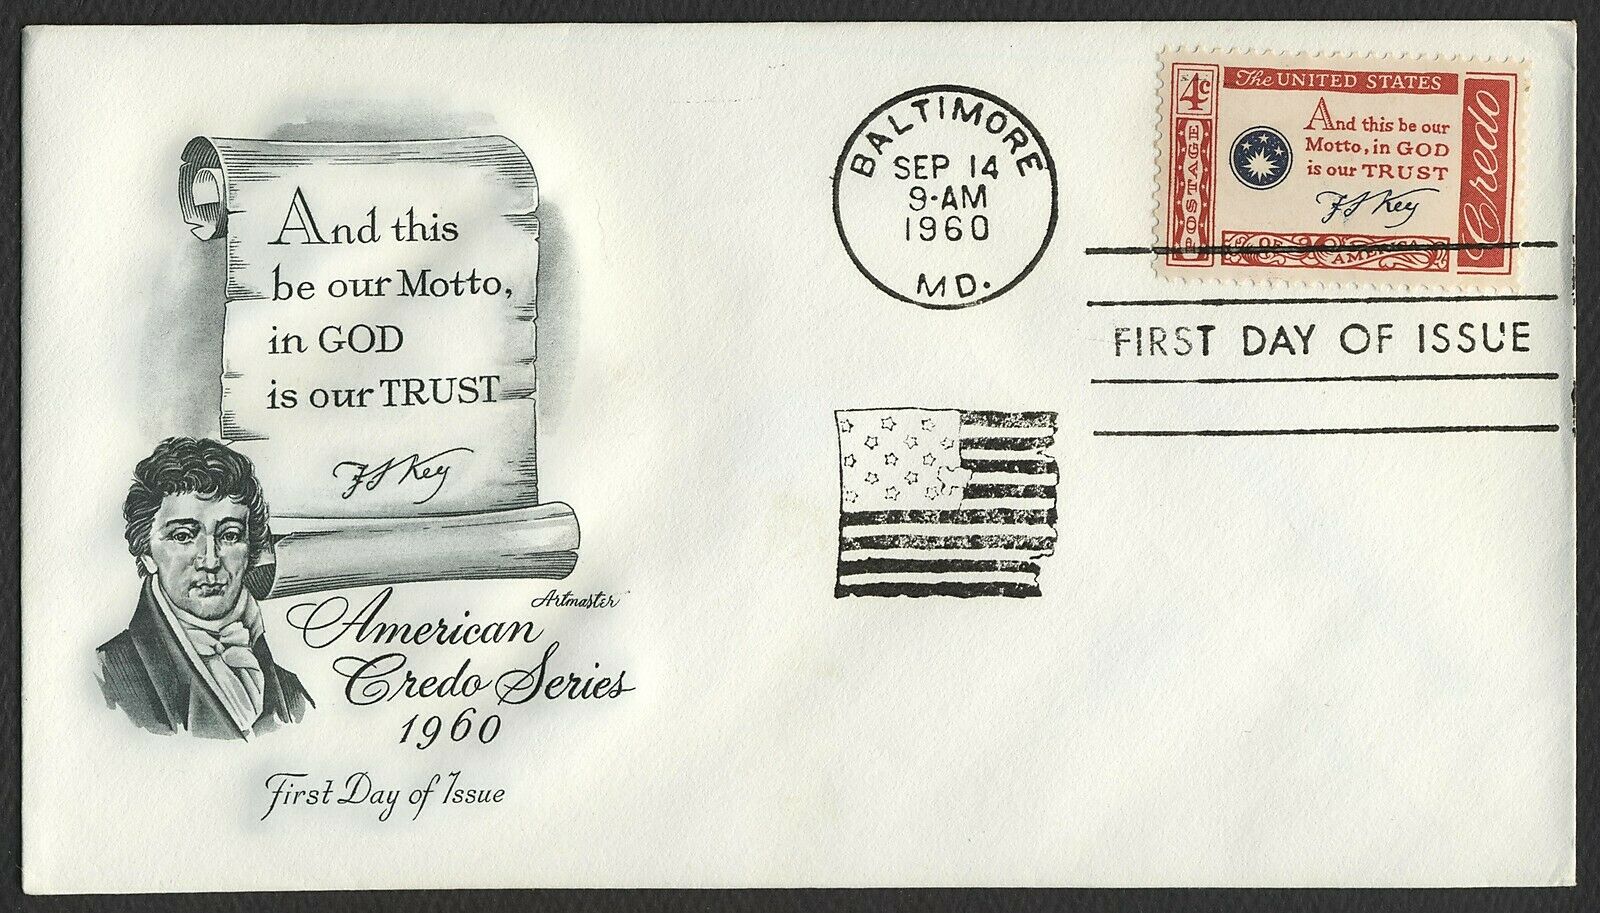 And this
be our Motto,
in GOD
is our TRUST
F S Key
Artmaster
American
Credo Series
1960
First Day of Issue
BALTIMORE
SEP 14
9-AM
1960
MD.
4c
POSTAGE
The UNITED STATES
And this be our
Motto, in GOD
is our TRUST
F S Key
OF AMERICA
Credo
FIRST DAY OF ISSUE